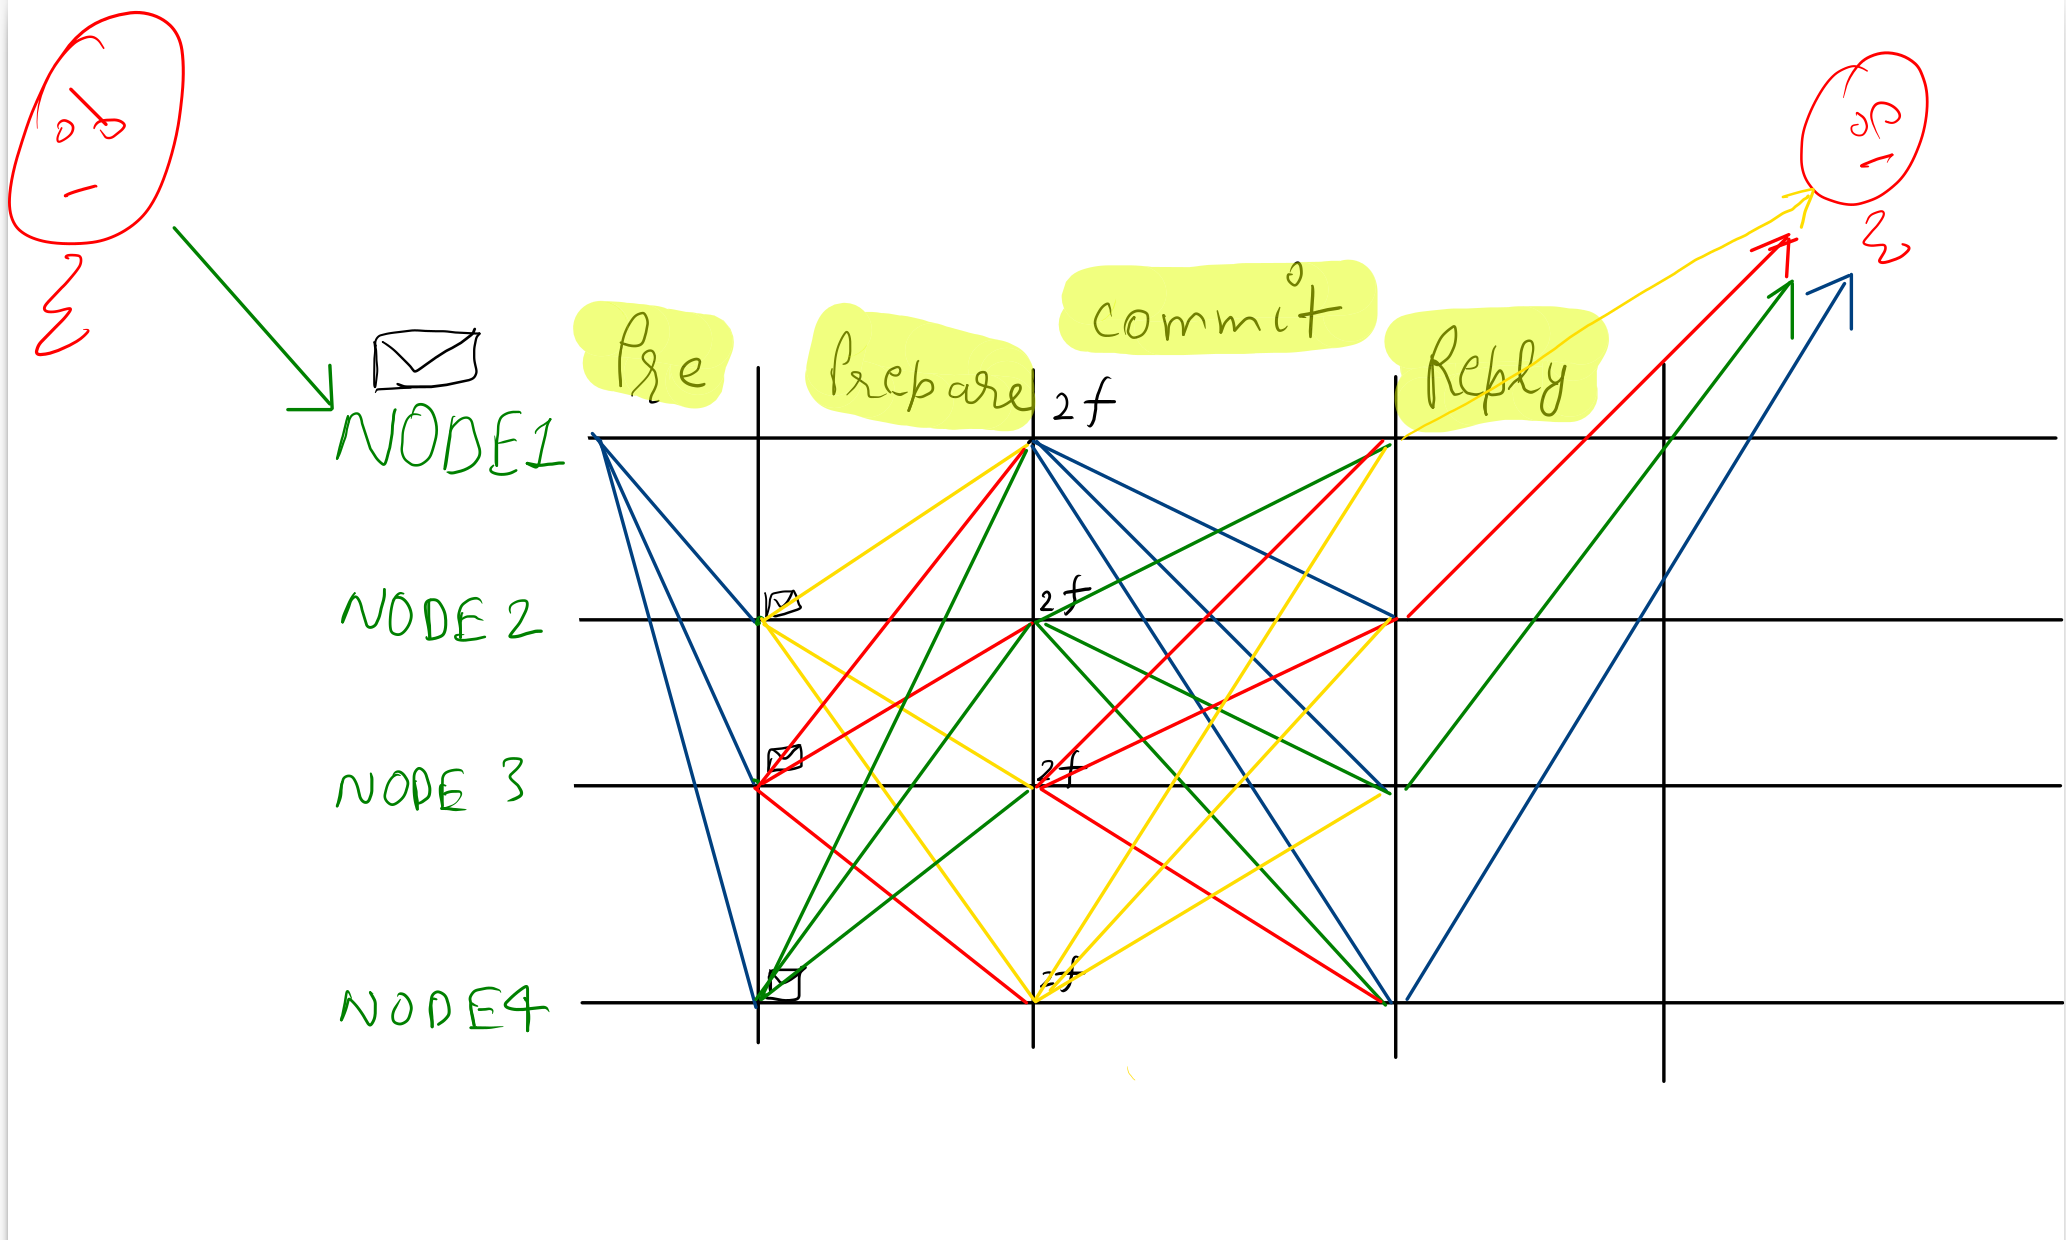 Pre
Prepare
commit
Reply
2f
NODE1
NODE 2
2f
NODE 3
2f
NODE4
2f